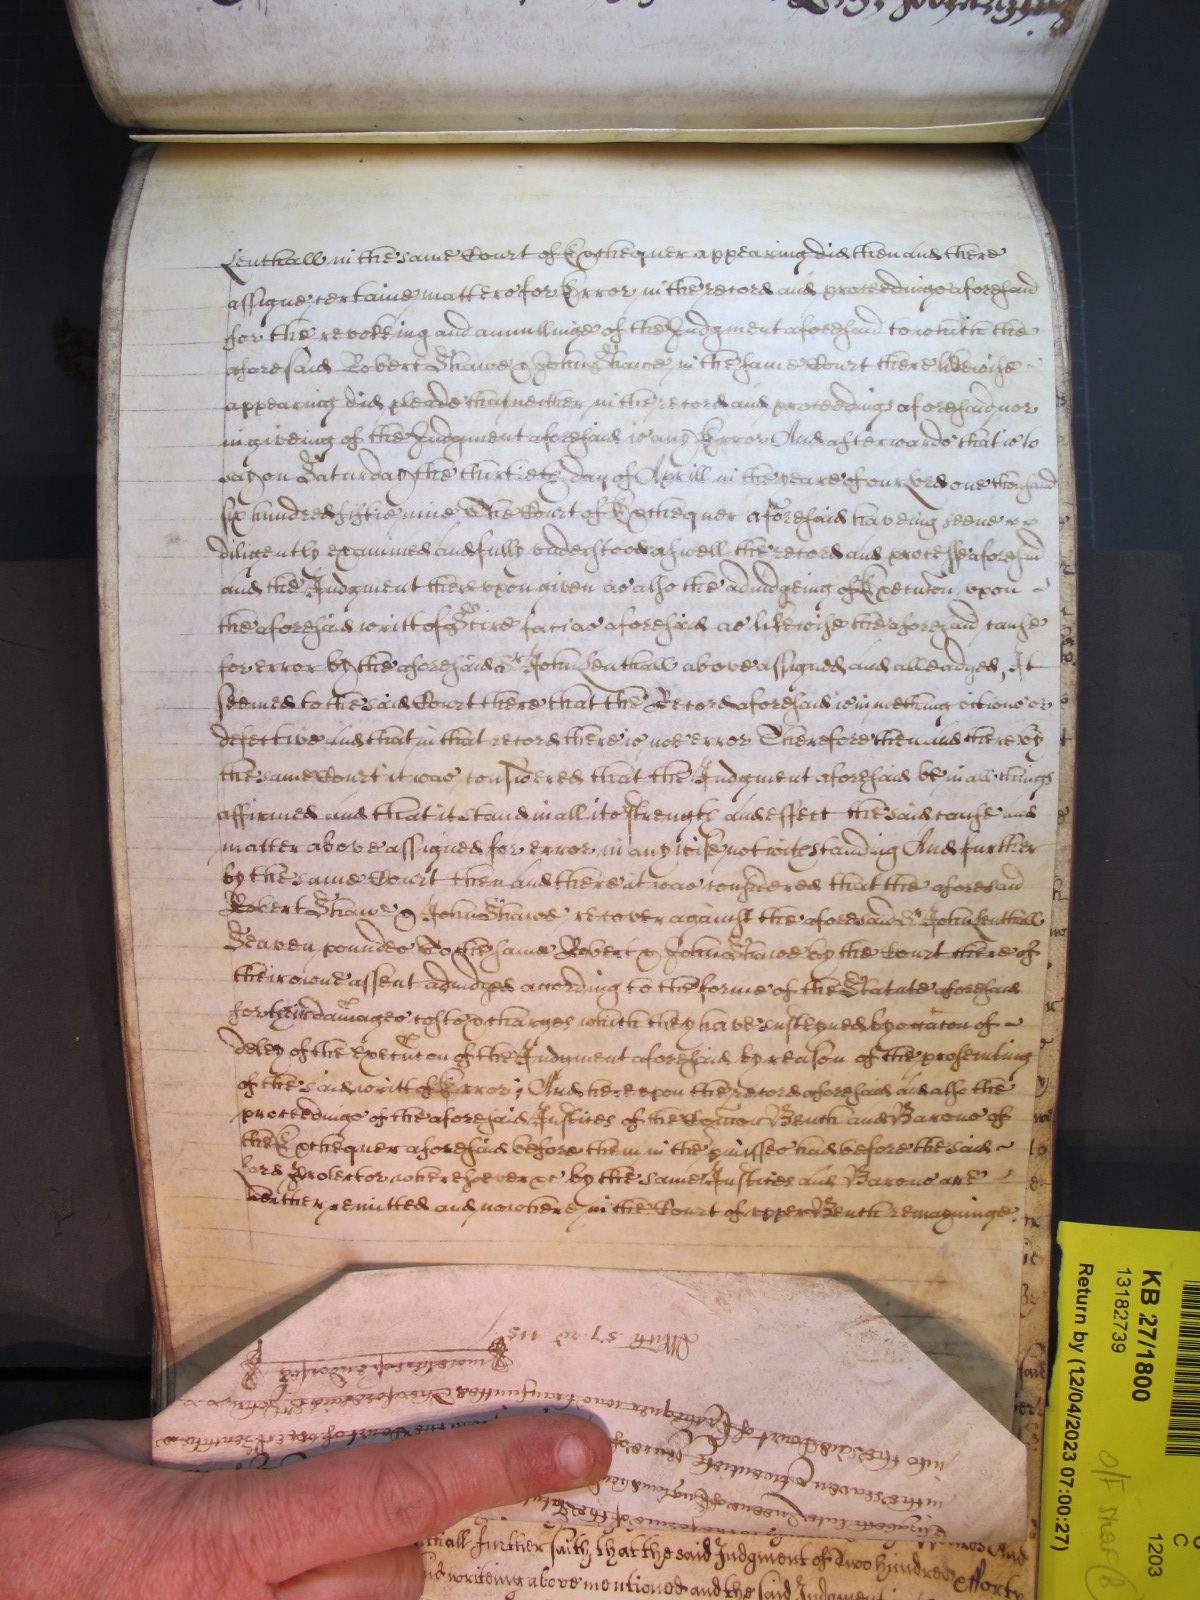 Lenthall in the same Court of Exchequer appearing did then and there
assigne certaine matters for Error in the record and proceedings aforesaid
for the revokeing and annullinge of the Judgment aforesaid to which the
aforesaid Robert Shawe & John Shawe in the same Court there likewise
appearing did pleade that neither in the record and proceedings aforesaid nor
in giveing of the Judgment aforesaid is any Error And afterwards that is to
say on Saturday the thirtieth day of Aprill in the yeare of our Lord one thousand
six hundred fiftie nine The Court of Exchequer aforesaid haveing seene &
diligently examined and fully understood aswell the record and processe aforesaid
and the Judgment thereupon given as also the adjudgeing of Execucon upon
the aforesaid writt of Scire facias aforesaid as likewise the aforesaid cause
for error by the aforesaid Sr John Lenthall above assigned and alleadged, It
seemed to the said Court there that the Record aforesaid is in nothing vitious or
defective and that in that record there is noe error Therefore then and there by
the same Court it was considered that the Judgment aforesaid be in all things
affirmed and that it stand in all its strength and effect the said cause and
matter above assigned for error in any wise notwithstanding And further
by the same Court then and there it was considered that the aforesaid
Robert Shawe & John Shawe recover against the aforesaid Sr John Lenthall
Seaven poundes To the same Robert & John Shawe by the Court there of
their owne assent adjudged according to the forme of the Statute aforesaid
for their damages costs & charges which they have susteyned by occacon of
delay of the Execucon of the Judgment aforesaid by reason of the prosecuting
of the said writt of Error; And hereupon the record aforesaid and also the
proceedings of the aforesaid Justices of the Comon Bench and Barons of
the Exchequer aforesaid before them in the pmisses had before the said
Lord Protector wheresoever &c by the same Justices and Barons are
hither remitted and nowhere in the Court of upper Bench remayninge.
into the said Court of Exchequer
Elizabeth late Queene of England
Lenthall further saith that the said Judgment of Two hundred
and writeing above mentioned and the said Judgment
KB 27/1800
13182739
Return by (12/04/2023 07:00:27)
C
1203